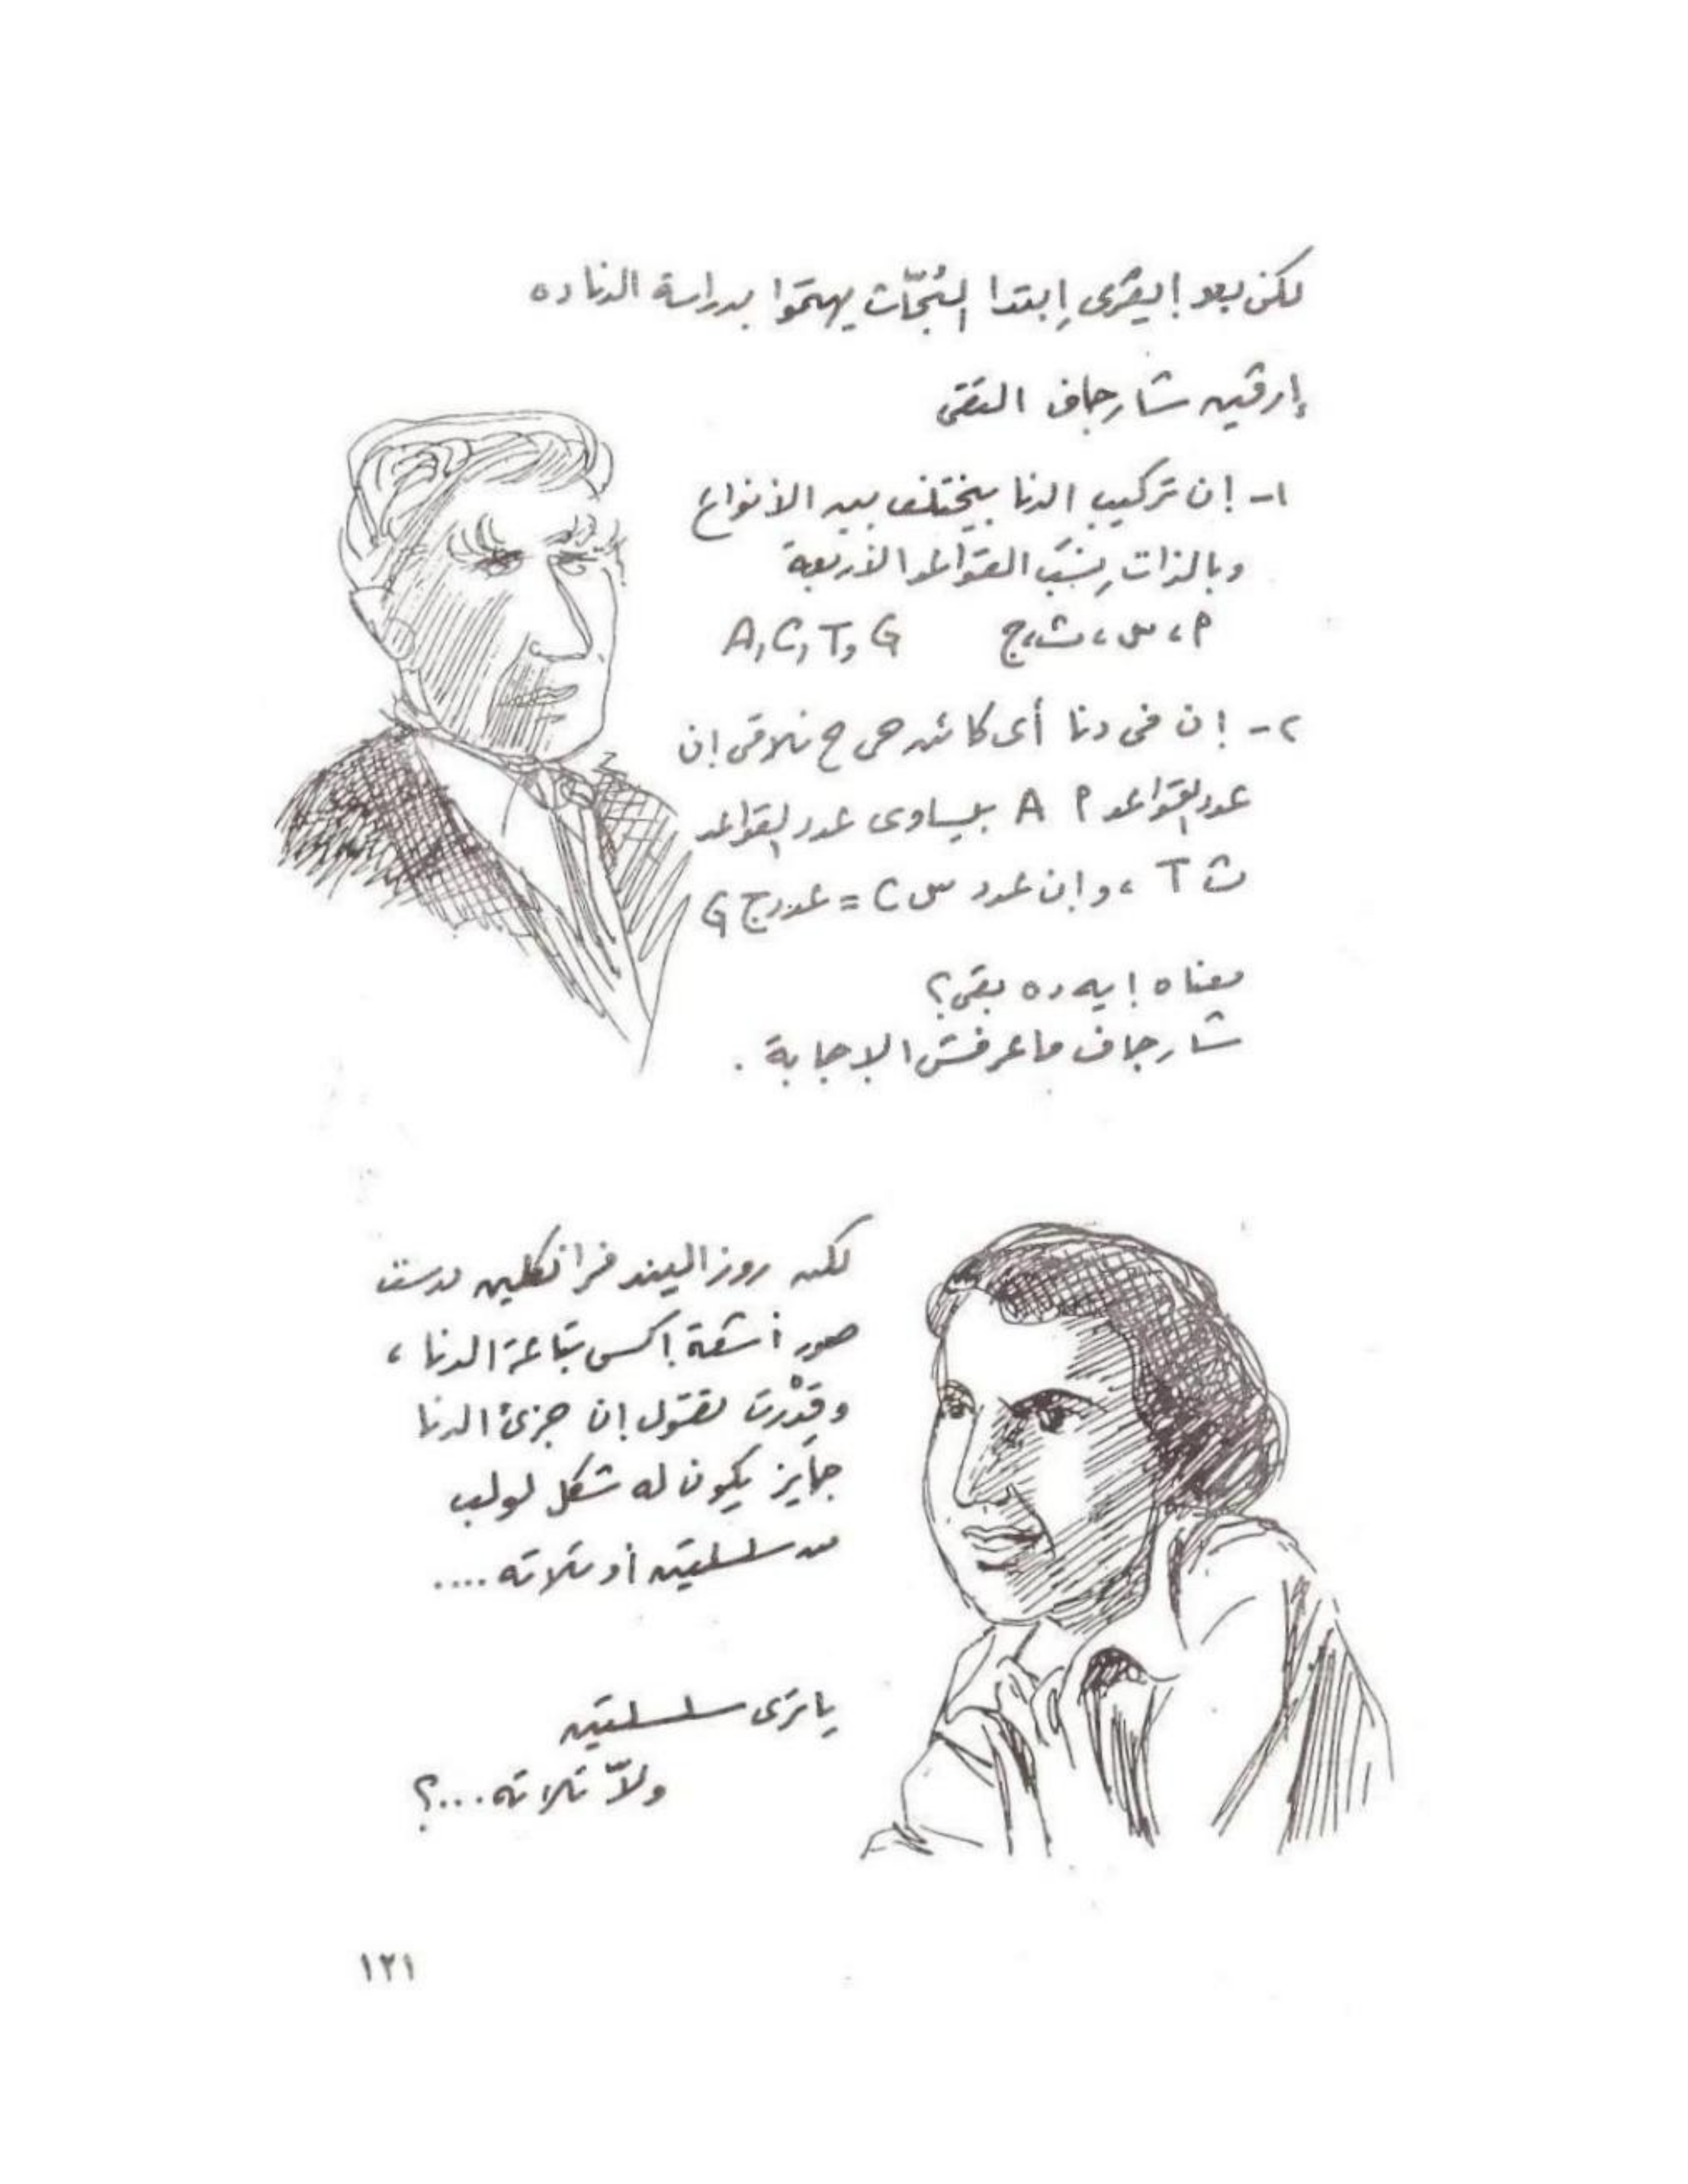 لكن بعد إيڤرى إبتدا البُحّاث يهتمّوا بدراسة الدنا ده
إرڤين شارجاف التقى
١- إن تركيب الدنا بيختلف بين الأنواع
وبالذات نِسَب القواعد الأربعة
أ، س، ث، ج A, C, T, G
٢- إن فى دنا أى كائن حى ح نلاقى إن
عدد القواعد أ A بيساوى عدد القواعد
ث T ، وإن عدد س C = عدد ج G
معناه إيه ده بقى؟
شارجاف ماعرفش الإجابة .
لكن روزاليند فرانكلين درست
صور أشعة إكس بتاعة الدنا ،
وقِدْرت تقول إن جزئ الدنا
جايز يكون له شكل لولب
من سلسلتين أو تلاته ....
يا ترى سلسلتين
ولاّ تلاته ...؟
١٢١